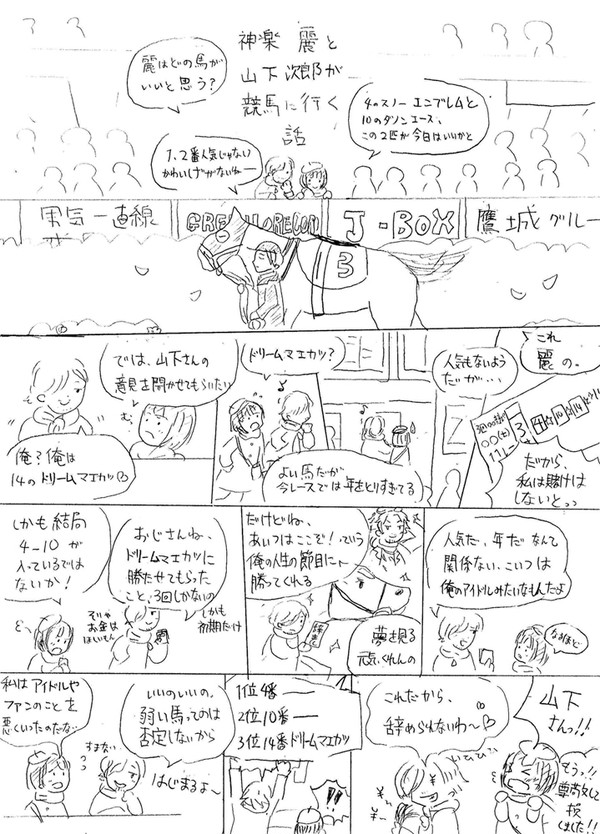 神楽 麗と
山下次郎が
競馬に行く
話
麗はどの馬が
いいと思う?
4のスノーエンブレムと
10のダノンエース、
この2匹が今日はいいかと
1、2番人気じゃない
かわいげがないねー
男気一直線
J-BOX
鷹城グルー
3
では、山下さんの
意見を聞かせてもらいたい
む
俺?俺は
14のドリームマエカツ♡
ドリームマエカツ?
よい馬だが
今レースでは年をとりすぎてる
人気もないよう
だが...
これ
麗の。
だから、
私は賭けは
しないとっっ
しかも結局
4-10が
入っているでは
ないか!
おじさんね、
ドリームマエカツに
勝たせてもらった
こと、3回しかないの
しかも
初期だけ
そいや
お金は
ほしいもん
だけどね、
あいつはここぞ!っていう
俺の人生の節目に、
勝ってくれる
夢を見る
元気くれんの
人気だ、年だなんて
関係ない、こいつは
俺のアイドルみたいなもんだよ
なるほど
私はアイドルや
ファンのことを
悪くいったのだな
すまない
いいのいいの。
弱い馬ってのは
否定しないから
はじまるよ~
1位4番 ——
2位10番 ——
3位14番ドリームマエカツ
!!!
これだから、
辞められないわ~♡
いひひっ
山下
さんっ!!
もうっ!!
尊敬して
損
しました!!